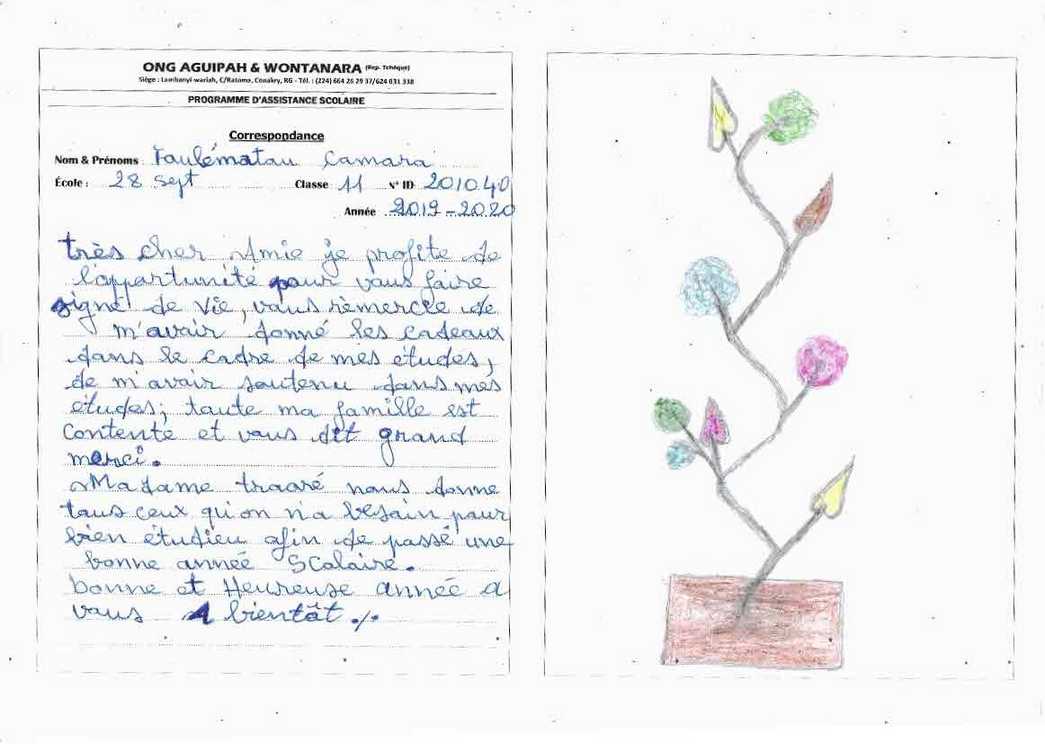 ONG AGUIPAH & WONTANARA (Rep. Tchèque)
Siège : Lambanyi-wariah, C/Ratoma, Conakry, RG - Tél. : (224) 664 26 29 37/624 031 338
PROGRAMME D'ASSISTANCE SCOLAIRE
Correspondance
Nom & Prénoms Foulématou Camara
École : 28 sept Classe 11 N° ID 2010.40
Année 2019-2020
très cher Amie je profite de
l'opportunité pour vous faire
signe de vie, vous rèmercie de
m'avoir donné les cadeaux
dans le cadre de mes études,
de m'avoir soutenu dans mes
études; toute ma famille est
contente et vous dit grand
merci.
Madame traoré nous donne
tous ceux qu'on n'a besoin pour
bien étudieu afin de passé une
bonne année Scolaire.
bonne et Heureuse année a
vous A bientôt ./.